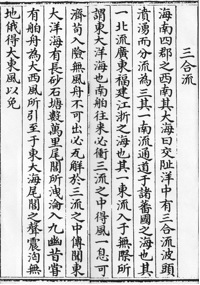 三合流
海南四郡之西南其大海曰交趾洋中有三合流波頭
濆湧而分流為三其一南流通道于諸蕃國之海也其
一北流廣東福建江浙之海也其一東流入于無際所
謂東大洋海也南舶往來必衝三流之中得風一息可
濟苟入險無風舟不可出必瓦解於三流之中傳聞東
大洋海有長砂石塘數萬里尾閭所洩淪入九幽昔嘗
有舶舟為大西風所引至于東大海尾閭之聲震洶無
地俄得大東風以免